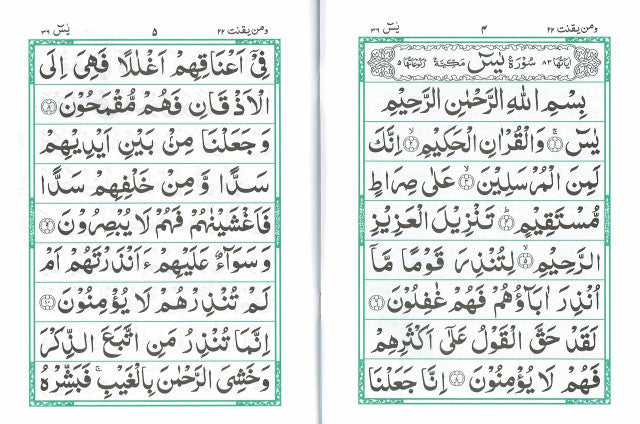 ومن يقنت ٢٢ ٤ يٰسٓ ٣٦
اٰيَاتُهَا ٨٣ سُوْرَةُ يٰسٓ مَكِّيَّةٌ رُكُوْعَاتُهَا ٥
بِسْمِ اللهِ الرَّحْمٰنِ الرَّحِيْمِ
يٰسٓ ۝١ وَالْقُرْاٰنِ الْحَكِيْمِ ۝٢ اِنَّكَ
لَمِنَ الْمُرْسَلِيْنَ ۝٣ عَلٰى صِرَاطٍ
مُّسْتَقِيْمٍ ۝٤ تَنْزِيْلَ الْعَزِيْزِ
الرَّحِيْمِ ۝٥ لِتُنْذِرَ قَوْمًا مَّآ
اُنْذِرَ اٰبَآؤُهُمْ فَهُمْ غٰفِلُوْنَ ۝٦
لَقَدْ حَقَّ الْقَوْلُ عَلٰٓى اَكْثَرِهِمْ
فَهُمْ لَا يُؤْمِنُوْنَ ۝٧ اِنَّا جَعَلْنَا
ومن يقنت ٢٢ ٥ يٰسٓ ٣٦
فِيْٓ اَعْنَاقِهِمْ اَغْلٰلًا فَهِىَ اِلَى
الْاَذْقَانِ فَهُمْ مُّقْمَحُوْنَ ۝٨
وَجَعَلْنَا مِنْۢ بَيْنِ اَيْدِيْهِمْ
سَدًّا وَّ مِنْ خَلْفِهِمْ سَدًّا
فَاَغْشَيْنٰهُمْ فَهُمْ لَا يُبْصِرُوْنَ ۝٩
وَسَوَآءٌ عَلَيْهِمْ ءَاَنْذَرْتَهُمْ اَمْ
لَمْ تُنْذِرْهُمْ لَا يُؤْمِنُوْنَ ۝١٠
اِنَّمَا تُنْذِرُ مَنِ اتَّبَعَ الذِّكْرَ
وَخَشِىَ الرَّحْمٰنَ بِالْغَيْبِ ۚ فَبَشِّرْهُ